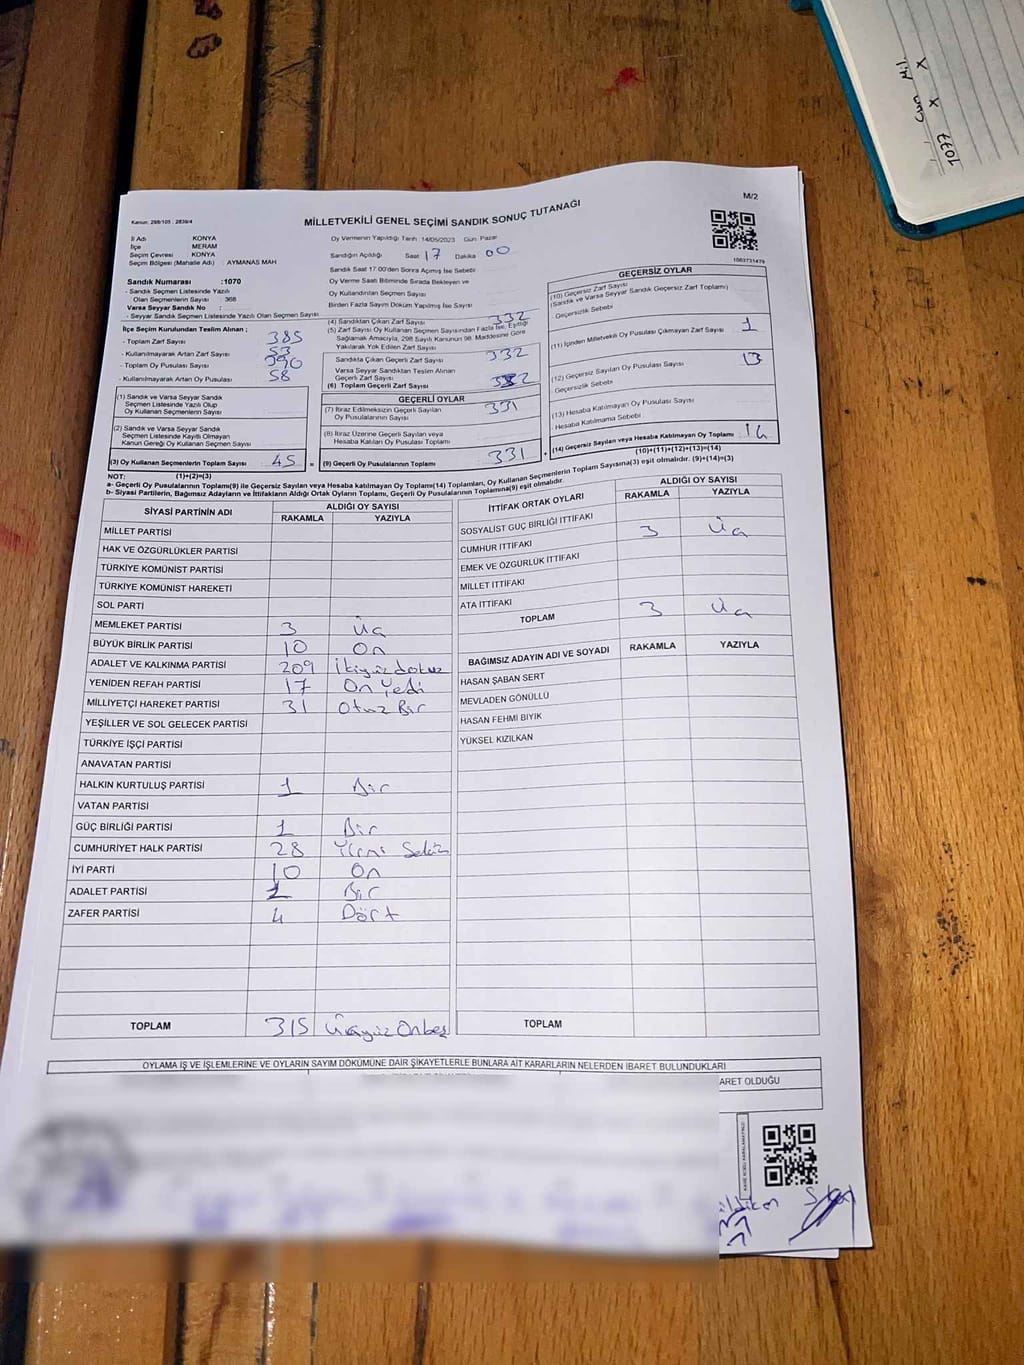 Cum Mil.
1077 X X
Kanun: 298/105 : 2839/4
M/2
MİLLETVEKİLİ GENEL SEÇİMİ SANDIK SONUÇ TUTANAĞI
İl Adı KONYA
İlçe MERAM
Seçim Çevresi KONYA
Seçim Bölgesi (Mahalle Adı) : AYMANAS MAH
Sandık Numarası :1070
- Sandık Seçmen Listesinde Yazılı
Olan Seçmenlerin Sayısı : 368
Varsa Seyyar Sandık No :
- Seyyar Sandık Seçmen Listesinde Yazılı Olan Seçmen Sayısı
Oy Vermenin Yapıldığı Tarih : 14/05/2023 Gün: Pazar
Sandığın Açıldığı Saat 17 Dakika 00
Sandık Saat 17:00'den Sonra Açılmış İse Sebebi
Oy Verme Saati Bitiminde Sırada Bekleyen ve
Oy Kullandırılan Seçmen Sayısı
Birden Fazla Sayım Döküm Yapılmış İse Sayısı
İlçe Seçim Kurulundan Teslim Alınan ;
- Toplam Zarf Sayısı 385
- Kullanılmayarak Artan Zarf Sayısı 53
- Toplam Oy Pusulası Sayısı 390
- Kullanılmayarak Artan Oy Pusulası 58
(1) Sandık ve Varsa Seyyar Sandık
Seçmen Listesinde Yazılı Olup
Oy Kullanan Seçmenlerin Sayısı
(2) Sandık ve Varsa Seyyar Sandık
Seçmen Listesinde Kayıtlı Olmayan
Kanun Gereği Oy Kullanan Seçmen Sayısı
(3) Oy Kullanan Seçmenlerin Toplam Sayısı 45
(1)+(2)=(3)
(4) Sandıktan Çıkan Zarf Sayısı 332
(5) Zarf Sayısı Oy Kullanan Seçmen Sayısından Fazla İse, Eşitliği
Sağlamak Amacıyla, 298 Sayılı Kanunun 98. Maddesine Göre
Yakılarak Yok Edilen Zarf Sayısı
Sandıkta Çıkan Geçerli Zarf Sayısı 332
Varsa Seyyar Sandıktan Teslim Alınan
Geçerli Zarf Sayısı
(6) Toplam Geçerli Zarf Sayısı 332
GEÇERLİ OYLAR
(7) İtiraz Edilmeksizin Geçerli Sayılan
Oy Pusulalarının Sayısı 331
(8) İtiraz Üzerine Geçerli Sayılan veya
Hesaba Katılan Oy Pusulası Toplamı
= (9) Geçerli Oy Pusulalarının Toplamı 331
1083731479
GEÇERSİZ OYLAR
(10) Geçersiz Zarf Sayısı
(Sandık ve Varsa Seyyar Sandık Geçersiz Zarf Toplamı)
Geçersizlik Sebebi
(11) İçinden Milletvekili Oy Pusulası Çıkmayan Zarf Sayısı 1
(12) Geçersiz Sayılan Oy Pusulası Sayısı 13
Geçersizlik Sebebi
(13) Hesaba Katılmayan Oy Pusulası Sayısı
- Hesaba Katılmama Sebebi
+ (14) Geçersiz Sayılan veya Hesaba Katılmayan Oy Toplamı 14
(10)+(11)+(12)+(13)=(14)
NOT:
a- Geçerli Oy Pusulalarının Toplamı(9) ile Geçersiz Sayılan veya Hesaba Katılmayan Oy Toplamı(14) Toplamları, Oy Kullanan Seçmenlerin Toplam Sayısına(3) eşit olmalıdır. (9)+(14)=(3)
b- Siyasi Partilerin, Bağımsız Adayların ve İttifakların Aldığı Ortak Oyların Toplamı, Geçerli Oy Pusulalarının Toplamına(9) eşit olmalıdır.
SİYASİ PARTİNİN ADI ALDIĞI OY SAYISI
RAKAMLA YAZIYLA
MİLLET PARTİSİ
HAK VE ÖZGÜRLÜKLER PARTİSİ
TÜRKİYE KOMÜNİST PARTİSİ
TÜRKİYE KOMÜNİST HAREKETİ
SOL PARTİ
MEMLEKET PARTİSİ 3 Üç
BÜYÜK BİRLİK PARTİSİ 10 On
ADALET VE KALKINMA PARTİSİ 209 İkiyüzdokuz
YENİDEN REFAH PARTİSİ 17 On Yedi
MİLLİYETÇİ HAREKET PARTİSİ 31 Otuz Bir
YEŞİLLER VE SOL GELECEK PARTİSİ
TÜRKİYE İŞÇİ PARTİSİ
ANAVATAN PARTİSİ
HALKIN KURTULUŞ PARTİSİ 1 Bir
VATAN PARTİSİ
GÜÇ BİRLİĞİ PARTİSİ 1 Bir
CUMHURİYET HALK PARTİSİ 28 Yirmi Sekiz
İYİ PARTİ 10 On
ADALET PARTİSİ 1 Bir
ZAFER PARTİSİ 4 Dört
TOPLAM 315 Üçyüz Onbeş
İTTİFAK ORTAK OYLARI ALDIĞI OY SAYISI
RAKAMLA YAZIYLA
SOSYALİST GÜÇ BİRLİĞİ İTTİFAKI
CUMHUR İTTİFAKI 3 Üç
EMEK VE ÖZGÜRLÜK İTTİFAKI
MİLLET İTTİFAKI
ATA İTTİFAKI
TOPLAM 3 Üç
BAĞIMSIZ ADAYIN ADI VE SOYADI RAKAMLA YAZIYLA
HASAN ŞABAN SERT
MEVLADEN GÖNÜLLÜ
HASAN FEHMİ BIYIK
YÜKSEL KIZILKAN
TOPLAM
OYLAMA İŞ VE İŞLEMLERİNE VE OYLARIN SAYIM DÖKÜMÜNE DAİR ŞİKAYETLERLE BUNLARA AİT KARARLARIN NELERDEN İBARET BULUNDUKLARI
ARET OLDUĞU